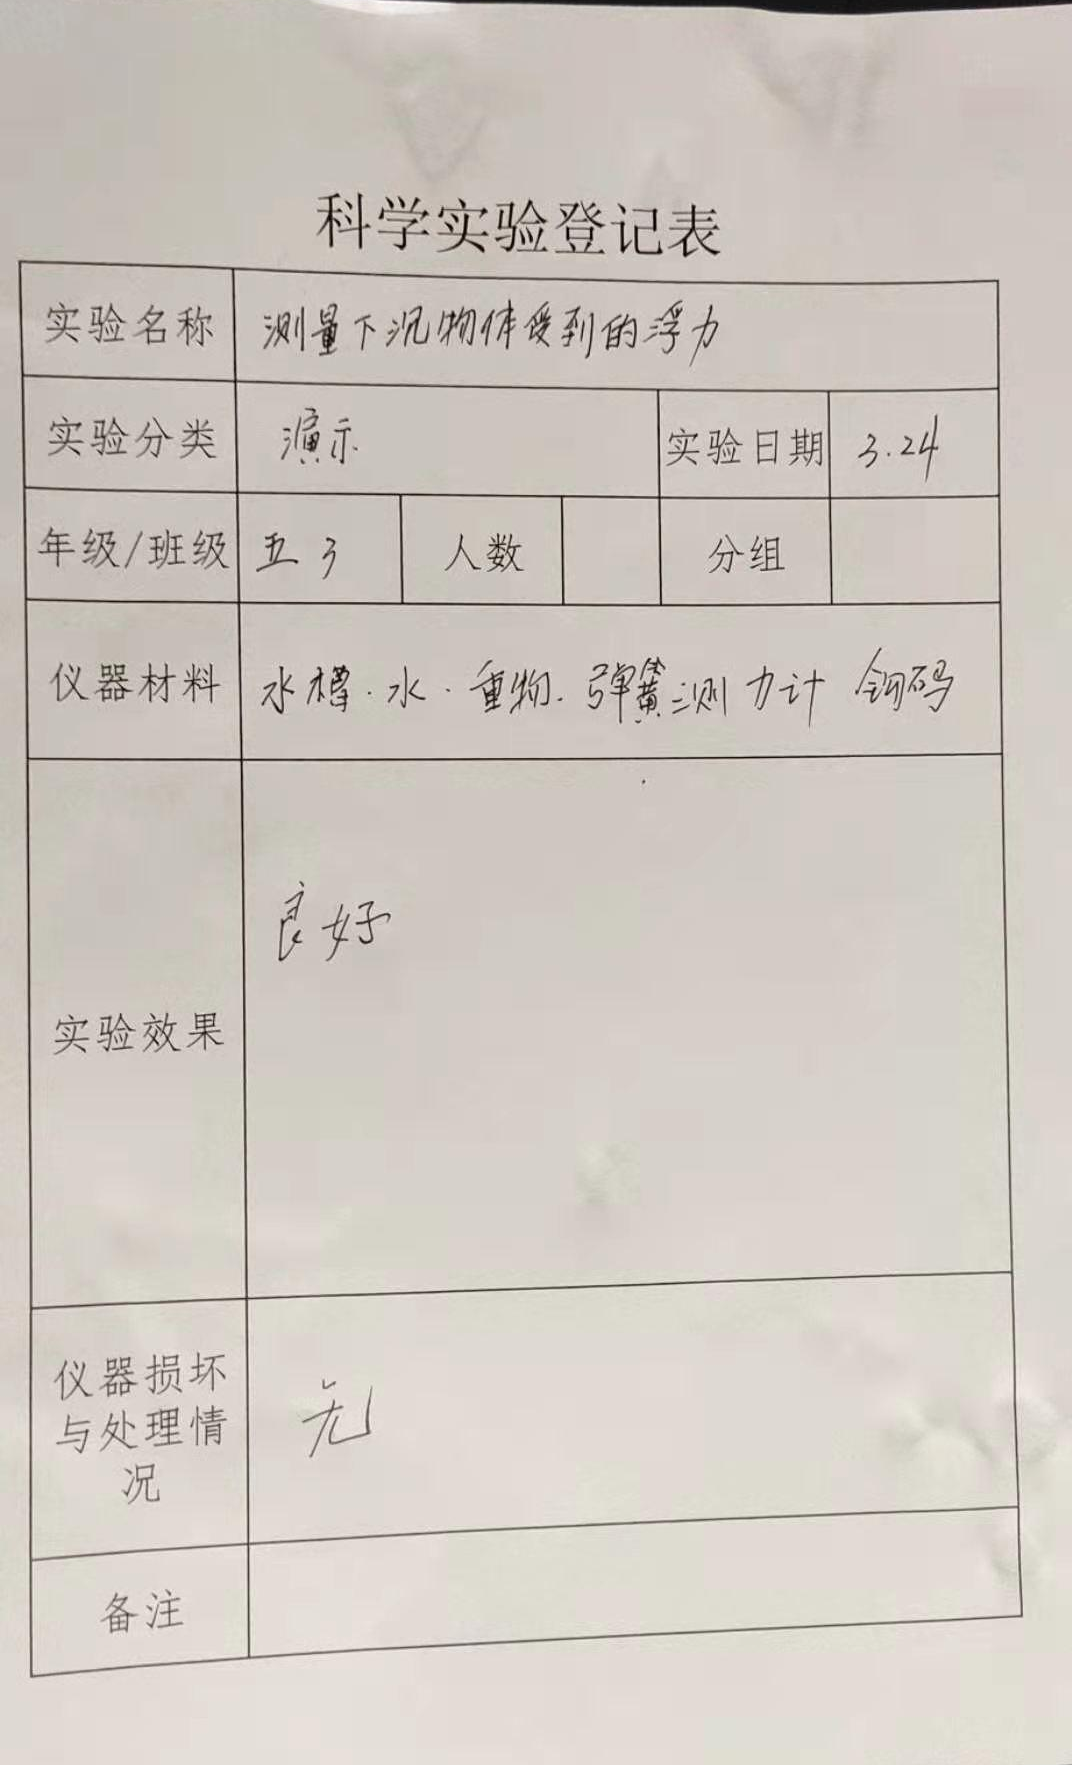 科学实验登记表
实验名称 测量下沉物体受到的浮力
实验分类 演示 实验日期 3.24
年级/班级 五3 人数 分组
仪器材料 水槽.水.重物.弹簧测力计 钩码
实验效果 良好
仪器损坏
与处理情
况
无
备注